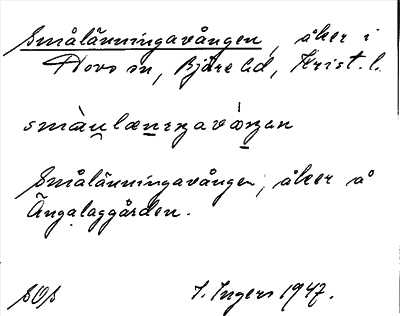 Smålänningavången, åker i
Hovs sn, Bjäre hd, Krist. l.
småu̱læṉıŋavåŋ̱en
Smålänningavången, åker å
Ängalaggården.
SOS I. Ingers 1947.